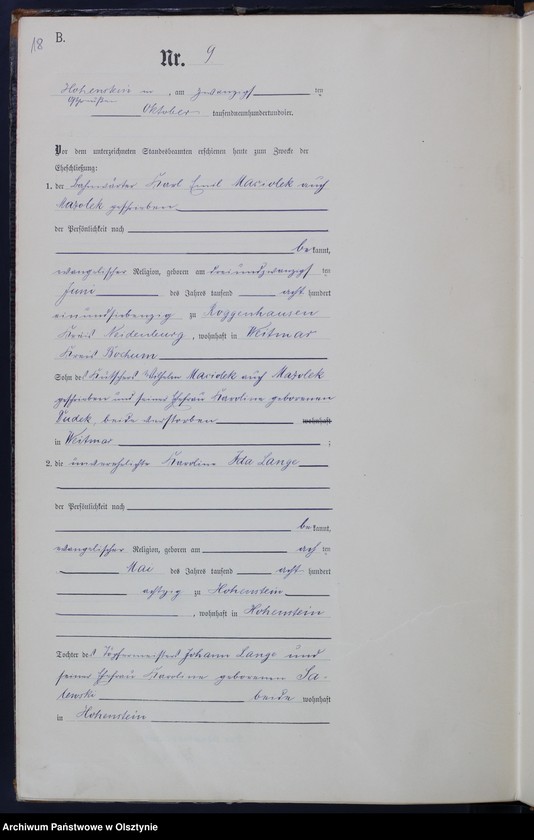 18
B.
Nr. 9
Hohenstein in , am zwanzigsten
Ostpreußen
Oktober tausendneunhundertundvier.
Vor dem unterzeichneten Standesbeamten erschienen heute zum Zwecke der
Eheschließung:
1. der Bahnwärter Karl Emil Maciolek auch
Mazolek geschrieben
der Persönlichkeit nach
bekannt,
evangelischer Religion, geboren am dreiundzwanzigsten
Juni des Jahres tausend acht hundert
einundsiebenzig zu Roggenhausen
Kreis Neidenburg , wohnhaft in Weitmar
Kreis Bochum
Sohn des Kutschers Wilhelm Maciolek auch Mazolek
geschrieben und seiner Ehefrau Karoline geborenen
Dudek, beide verstorben wohnhaft
in Weitmar ;
2. die unverehelichte Karoline Ida Lange
der Persönlichkeit nach
bekannt,
evangelischer Religion, geboren am achten
Mai des Jahres tausend acht hundert
achtzig zu Hohenstein
, wohnhaft in Hohenstein
Tochter des Töpfermeisters Johann Lange und
seiner Ehefrau Karoline geborenen Sa-
lewski beide wohnhaft
in Hohenstein
Archiwum Państwowe w Olsztynie